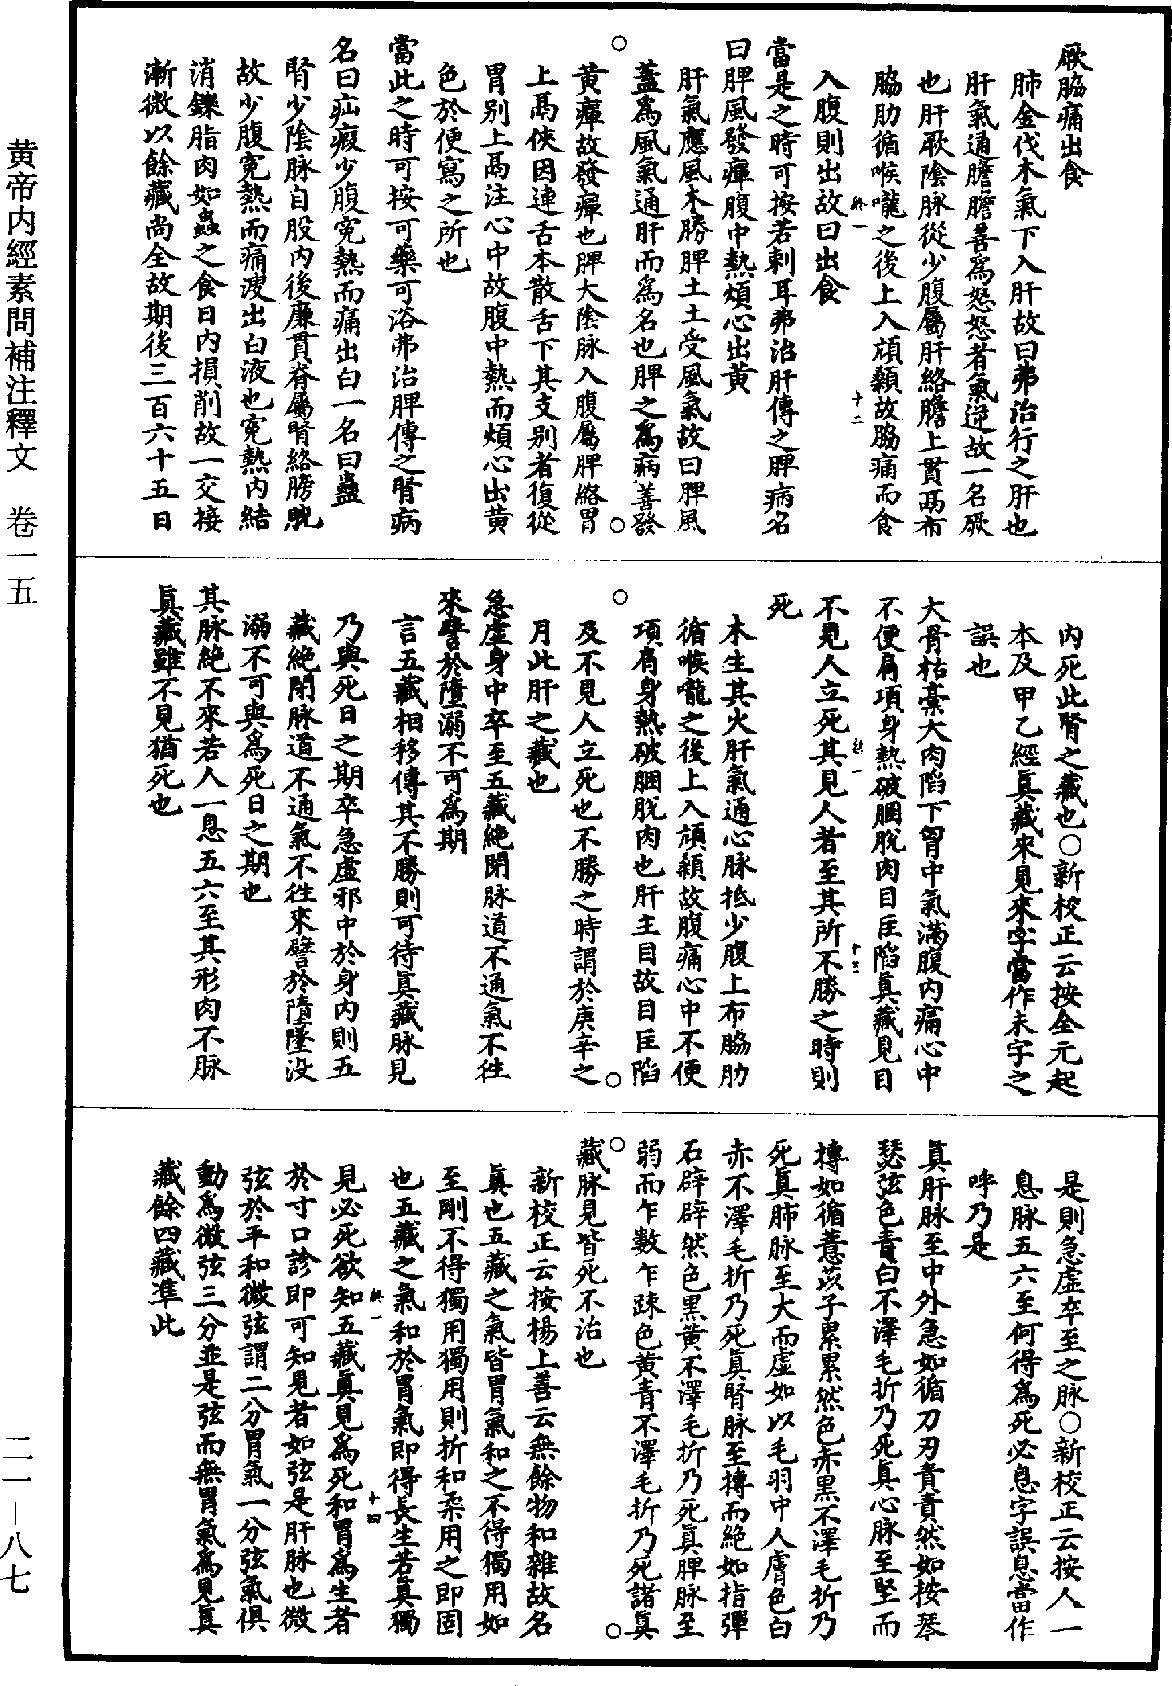 厥脇痛出食
肺金伐木氣下入肝故曰弗治行之肝也
肝氣通膽膽善為怒怒者氣逆故一名厥
也肝厥陰脉從少腹屬肝絡膽上貫鬲布
脇肋循喉嚨之後上入頏顙故脇痛而食
入腹則出故曰出食
當是之時可按若刺耳弗治肝傳之脾病名
曰脾風發癉腹中熱煩心出黄
肝氣應風木勝脾土土受風氣故曰脾風
蓋為風氣通肝而為名也脾之為病善發
黄癉故發癉也脾大陰脉入腹屬脾絡胃
上鬲俠因連舌本散舌下其支别者復從
胃别上鬲注心中故腹中熱而煩心出黄
色於便寫之所也
當此之時可按可藥可浴弗治脾傳之腎病
名曰疝瘕少腹寃熱而痛出白一名曰蠱
腎少陰脉自股内後廉貫脊屬腎絡膀胱
故少腹寃熱而痛溲出白液也寃熱内結
消鑠脂肉如蟲之食日内損削故一交接
漸微以餘藏尚全故期後三百六十五日
内死此腎之藏也○新校正云按全元起
本及甲乙經真藏來見來字當作未字之
誤也
大骨枯槀大肉陷下胷中氣滿腹内痛心中
不便肩項身熱破䐃脱肉目匡陷真藏見目
不見人立死其見人者至其所不勝之時則
死
木生其火肝氣通心脉抵少腹上布脇肋
循喉嚨之後上入頏顙故腹痛心中不便
項肩身熱破䐃脱肉也肝主目故目匡陷
及不見人立死也不勝之時謂於庚辛之
月此肝之藏也
急虚身中卒至五藏絶閉脉道不通氣不往
來譬於墮溺不可為期
言五藏相移傳其不勝則可待真藏脉見
乃與死日之期卒急虚邪中於身内則五
藏絶閉脉道不通氣不往來譬於墮墜没
溺不可與為死日之期也
其脉絶不來若人一息五六至其形肉不脉
真藏雖不見猶死也
是則急虚卒至之脉○新校正云按人一
息脉五六至何得為死必息字誤息當作
呼乃是
真肝脉至中外急如循刀刃責責然如按琴
瑟弦色青白不澤毛折乃死真心脉至堅而
摶如循薏苡子累累然色赤黑不澤毛折乃
死真肺脉至大而虚如以毛羽中人膚色白
赤不澤毛折乃死真腎脉至摶而絶如指彈
石辟辟然色黑黄不澤毛折乃死真脾脉至
弱而乍數乍疎色黄青不澤毛折乃死諸真
藏脉見皆死不治也
新校正云按楊上善云無餘物和雜故名
真也五藏之氣皆胃氣和之不得獨用如
至剛不得獨用獨用則折和柔用之即固
也五藏之氣和於胃氣即得長生若真獨
見必死欲知五藏真見為死和胃為生者
於寸口診即可知見者如弦是肝脉也微
弦於平和微弦謂二分胃氣一分弦氣俱
動為微弦三分並是弦而無胃氣為見真
藏餘四藏準此
黄帝内經素問補注釋文　卷一五
二一—八七